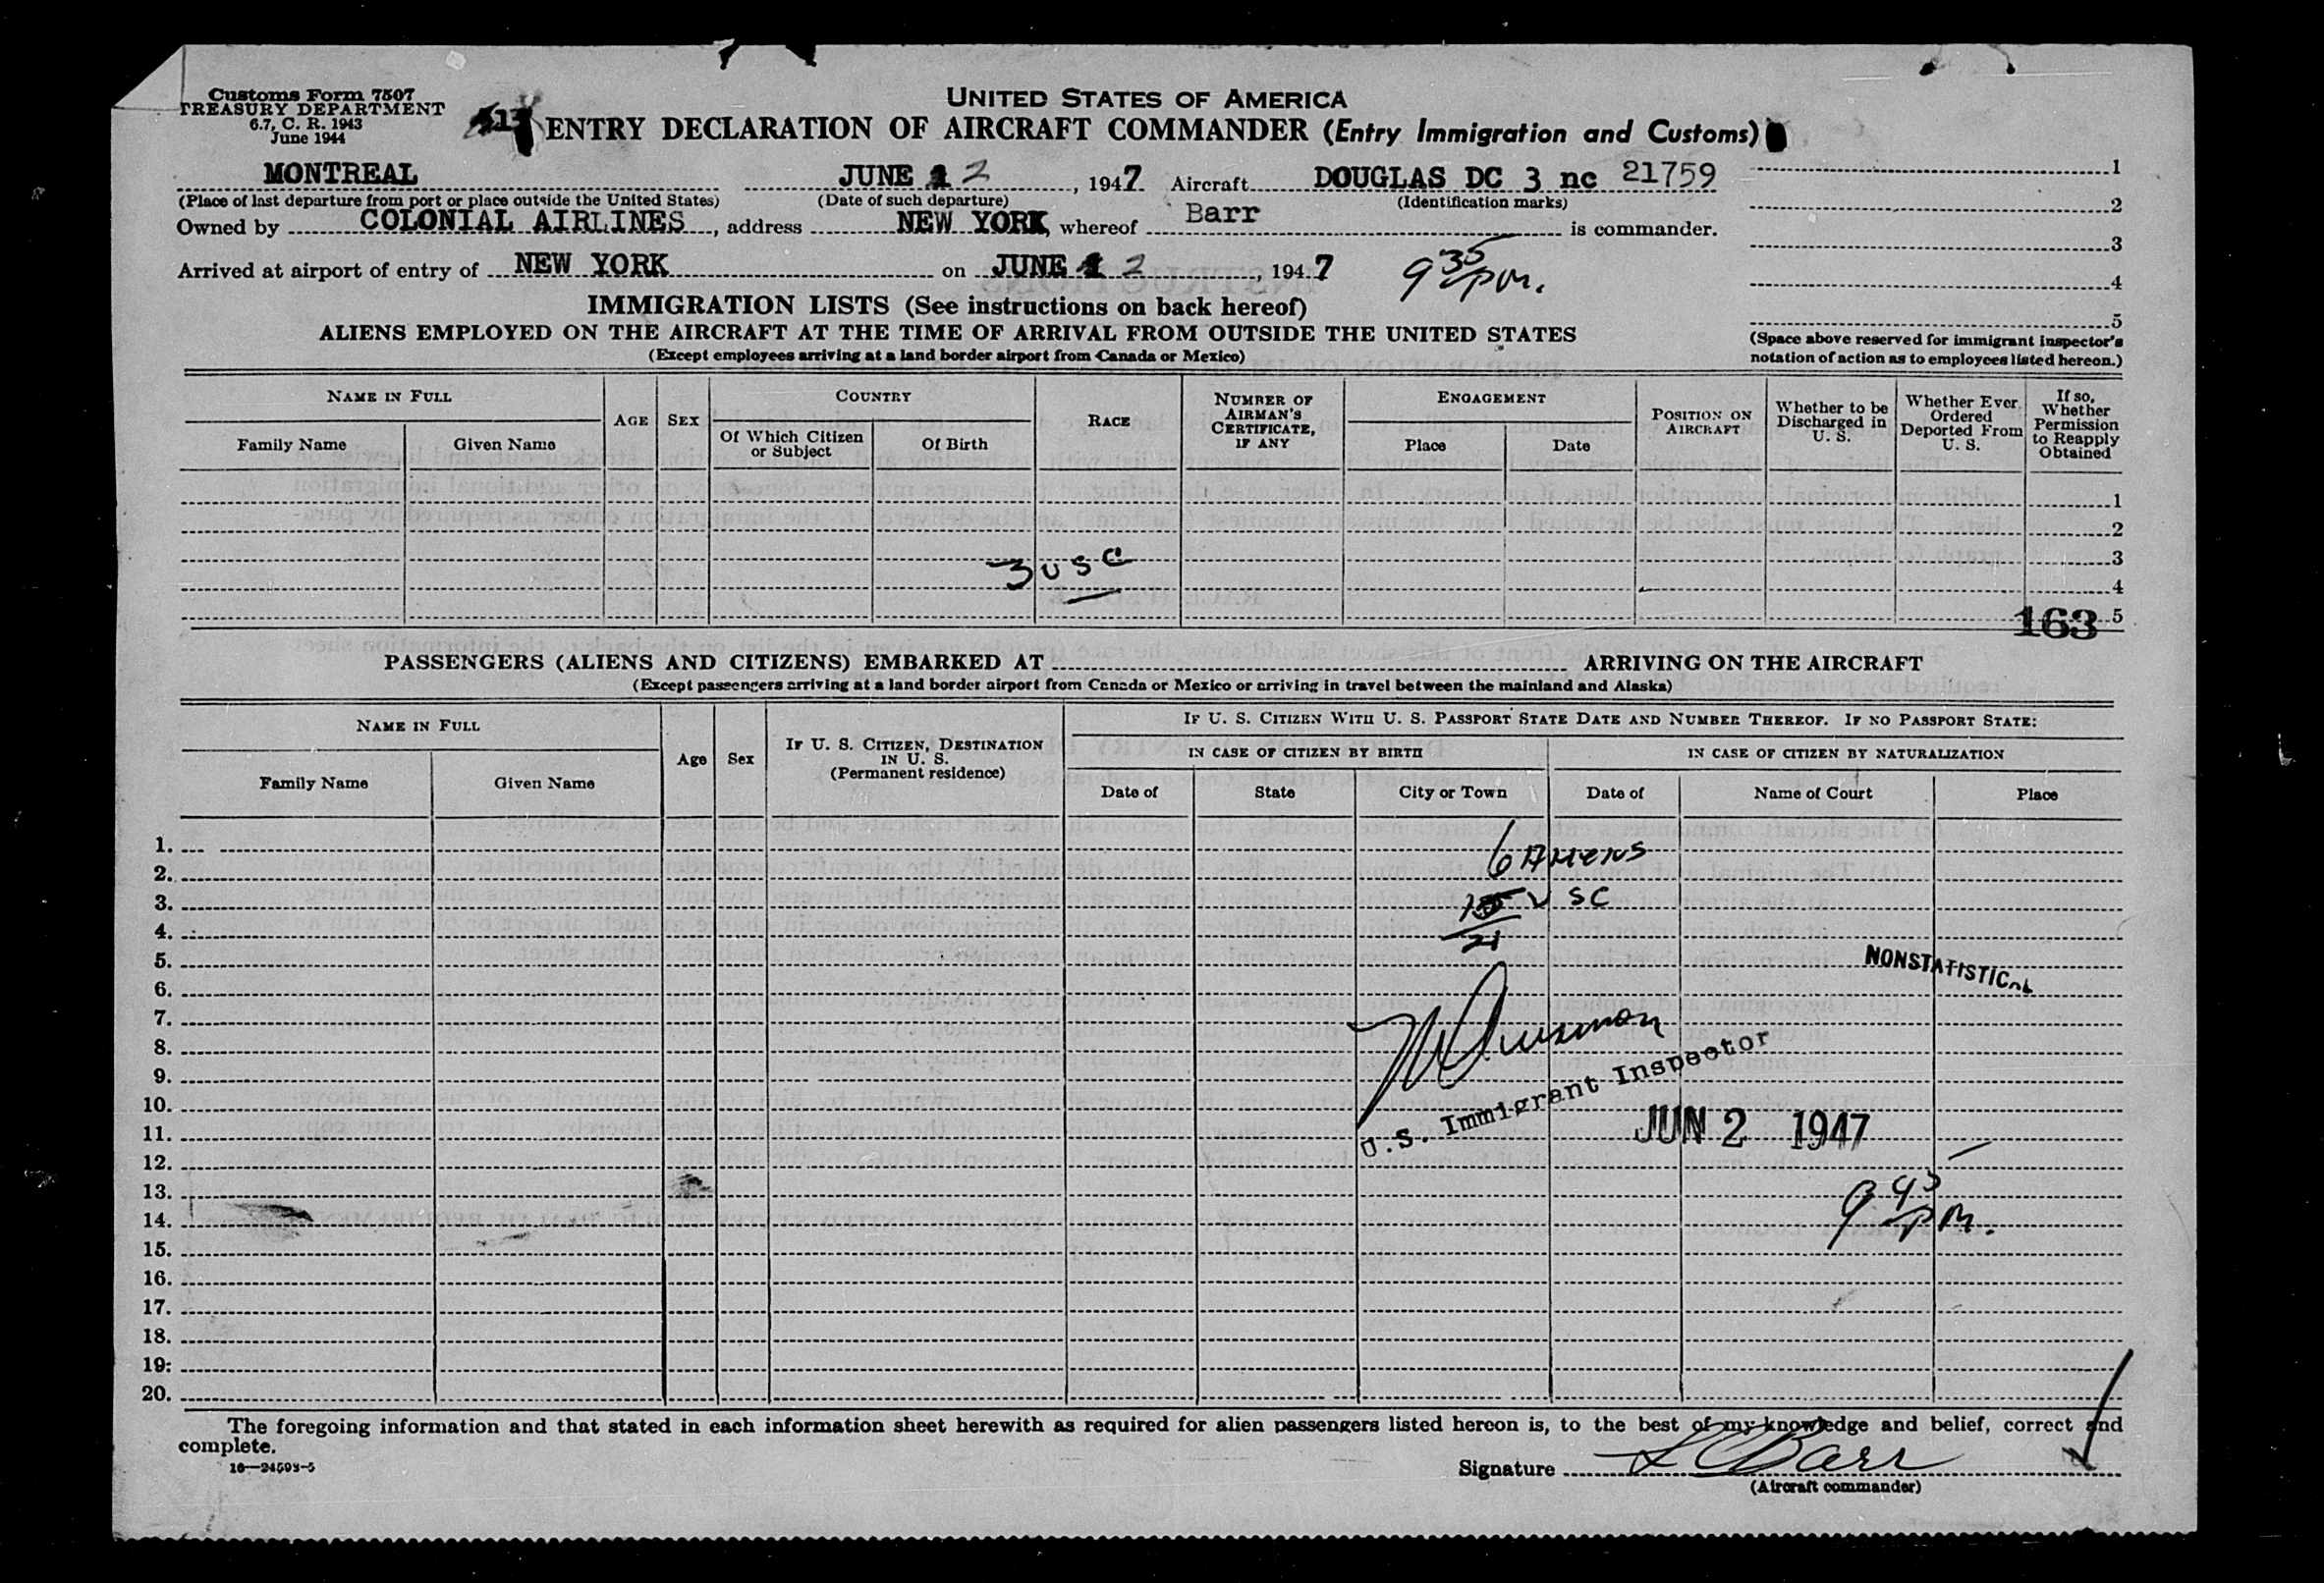 Customs Form 7507
TREASURY DEPARTMENT
6.7, C. R. 1943
June 1944
UNITED STATES OF AMERICA
ENTRY DECLARATION OF AIRCRAFT COMMANDER (Entry Immigration and Customs)
MONTREAL JUNE 2, 1947 Aircraft DOUGLAS DC 3 nc 21759
(Place of last departure from port or place outside the United States) (Date of such departure) (Identification marks)
Owned by COLONIAL AIRLINES, address NEW YORK, whereof Barr is commander.
Arrived at airport of entry of NEW YORK on JUNE 2, 1947 9 35 pm.
1
2
3
4
5
(Space above reserved for immigrant inspector's
notation of action as to employees listed hereon.)
IMMIGRATION LISTS (See instructions on back hereof)
ALIENS EMPLOYED ON THE AIRCRAFT AT THE TIME OF ARRIVAL FROM OUTSIDE THE UNITED STATES
(Except employees arriving at a land border airport from Canada or Mexico)
NAME IN FULL
Family Name Given Name
AGE
SEX
COUNTRY
Of Which Citizen or Subject
Of Birth
RACE
NUMBER OF AIRMAN'S CERTIFICATE, IF ANY
ENGAGEMENT
Place Date
POSITION ON AIRCRAFT
Whether to be Discharged in U. S.
Whether Ever Ordered Deported From U. S.
If so, Whether Permission to Reapply Obtained
1
2
3
3 USC
4
5
163
PASSENGERS (ALIENS AND CITIZENS) EMBARKED AT ARRIVING ON THE AIRCRAFT
(Except passengers arriving at a land border airport from Canada or Mexico or arriving in travel between the mainland and Alaska)
NAME IN FULL
Family Name Given Name
Age
Sex
IF U. S. CITIZEN, DESTINATION IN U. S.
(Permanent residence)
IF U. S. CITIZEN WITH U. S. PASSPORT STATE DATE AND NUMBER THEREOF. IF NO PASSPORT STATE:
IN CASE OF CITIZEN BY BIRTH IN CASE OF CITIZEN BY NATURALIZATION
Date of State City or Town Date of Name of Court Place
1.
6 Aliens
2.
3.
15 USC
4.
21
5.
NONSTATISTICAL
6.
7.
8.
9.
U.S. Immigrant Inspector
10.
11.
JUN 2 1947
12.
13.
9 45 pm.
14.
15.
16.
17.
18.
19.
20.
The foregoing information and that stated in each information sheet herewith as required for alien passengers listed hereon is, to the best of my knowledge and belief, correct and
complete.
16—24593-5
Signature Barr
(Aircraft commander)